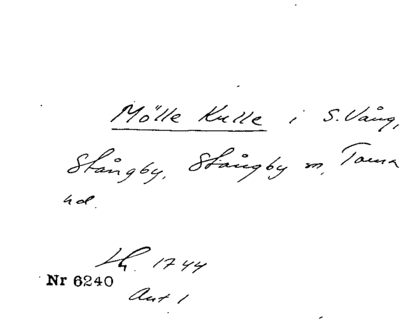 Mölle Kulle i S. Vång,
Stångby, Stångby m, Torna
hd.
Lh. 1744
Nr 6240
Akt 1